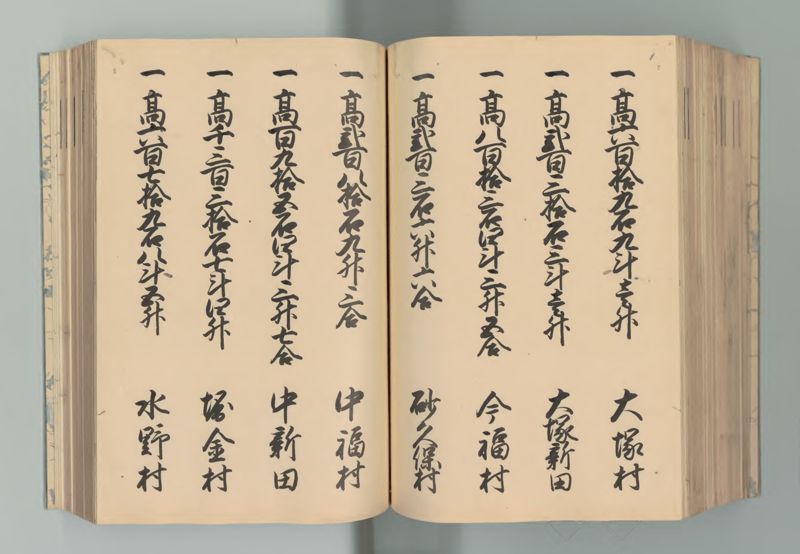 一高六百拾九石九斗壱升 大塚村
一高弐百三拾石三斗壱升 大塚新田
一高八百拾三石四斗三升五合 今福村
一高弐百三石六斗六升六合 砂久保村
一高弐百八拾石九升三合 中福村
一高百九拾五石四斗三升七合 中新田
一高千三百三拾石七斗四升 堀金村
一高六百七拾九石八斗五升 水野村